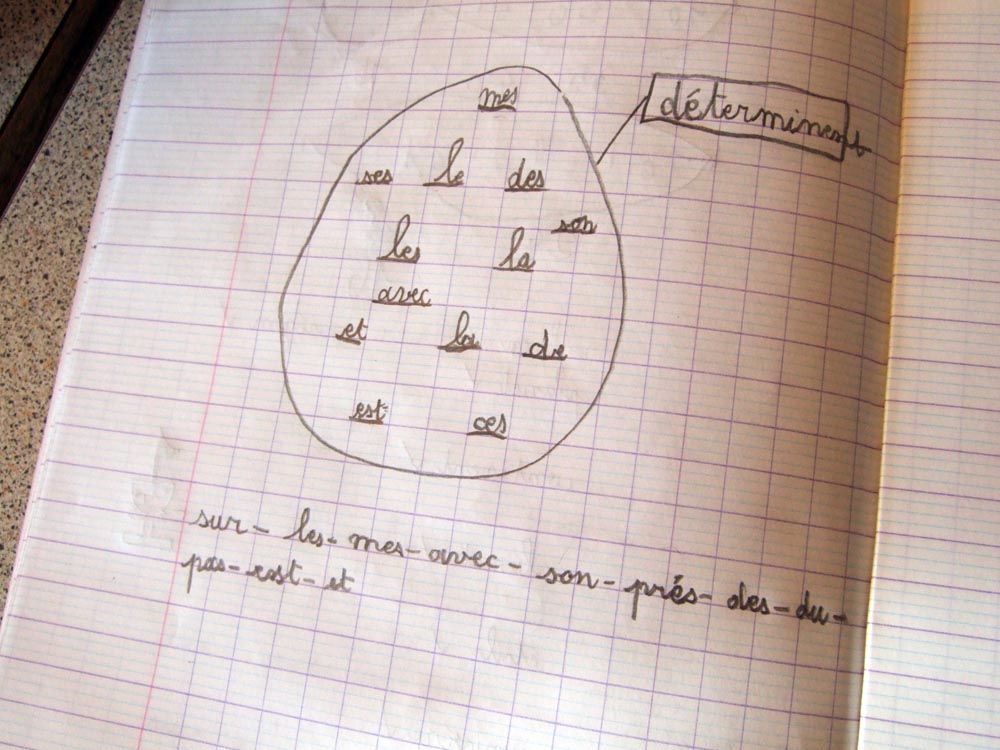 mes
déterminent
ses le des
son
les la
avec
et la de
est ces
sur - les - mes - avec - son - prés - des - du -
pas - est - et